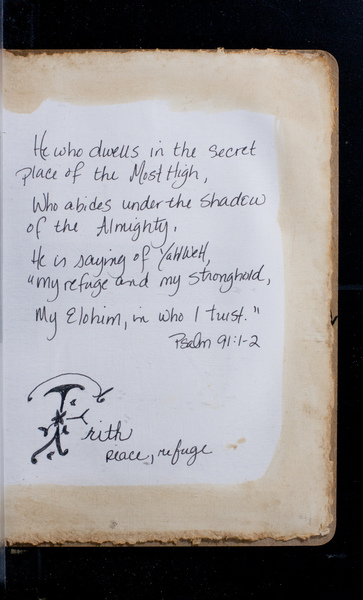 He who dwells in the secret
place of the Most High,
Who abides under the shadow
of the Almighty.
He is saying of YaHWeH,
"my refuge and my stronghold,
My Elohim, in who I trust."
Psalm 91:1-2
rith
peace, refuge